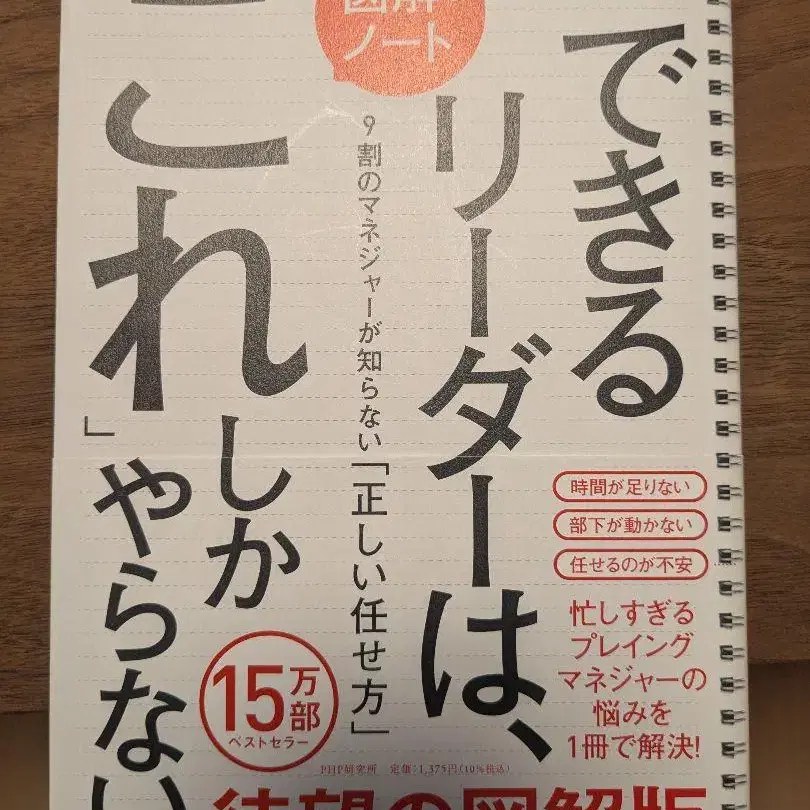 図解
ノート
できる
リーダーは、
「これ」しか
やらない
9割のマネジャーが知らない「正しい任せ方」
時間が足りない
部下が動かない
任せるのが不安
忙しすぎる
プレイング
マネジャーの
悩みを
1冊で解決!
15万部
ベストセラー
PHP研究所 定価:1,375円(10%税込)
待望の図解版